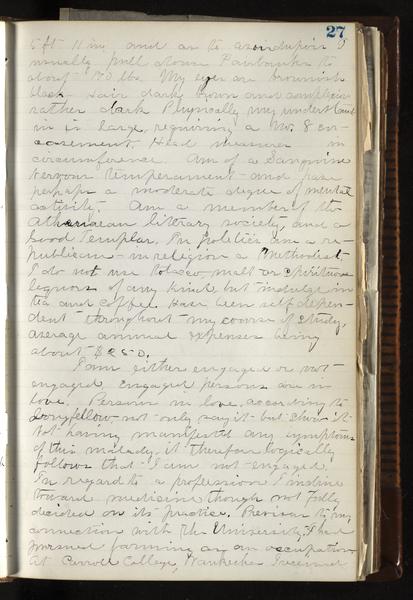 27
5 ft 11 in, and as to avoirdupois I
usually pull down Fairbanks to
about 170 lbs. My eyes are brownish
black hair dark brown and complexion
rather dark Physically my understand
in is large, requiring a No. 8 en-
casement. Head measures in
circumference. Am of a Sanguine
Nervous temperament and pass
perhaps a moderate degree of mental
activity. Am a member of the
Athenaean literary society, and a
Good Templar, In politics am a re-
publican - in religion a Methodist-
I do not use tobacco, malt or spirituous
liquors of any kind but indulge in
tea and coffee. Have been self depen-
dent throughout my course of study,
average annual expenses being
about $250.
I am either engaged or not
engaged, engaged persons are in
love. Persons in love, according to
Longfellow not only say it but show it
Not having manifested any symptoms
of this malady, it therefore logically
follows that I am not engaged.
In regard to a profession I incline
toward medicine though not fully
decided on its practice. Previous to my
connection with the University, I had
pursued farming as an occupation
At Carroll College, Waukesha I received